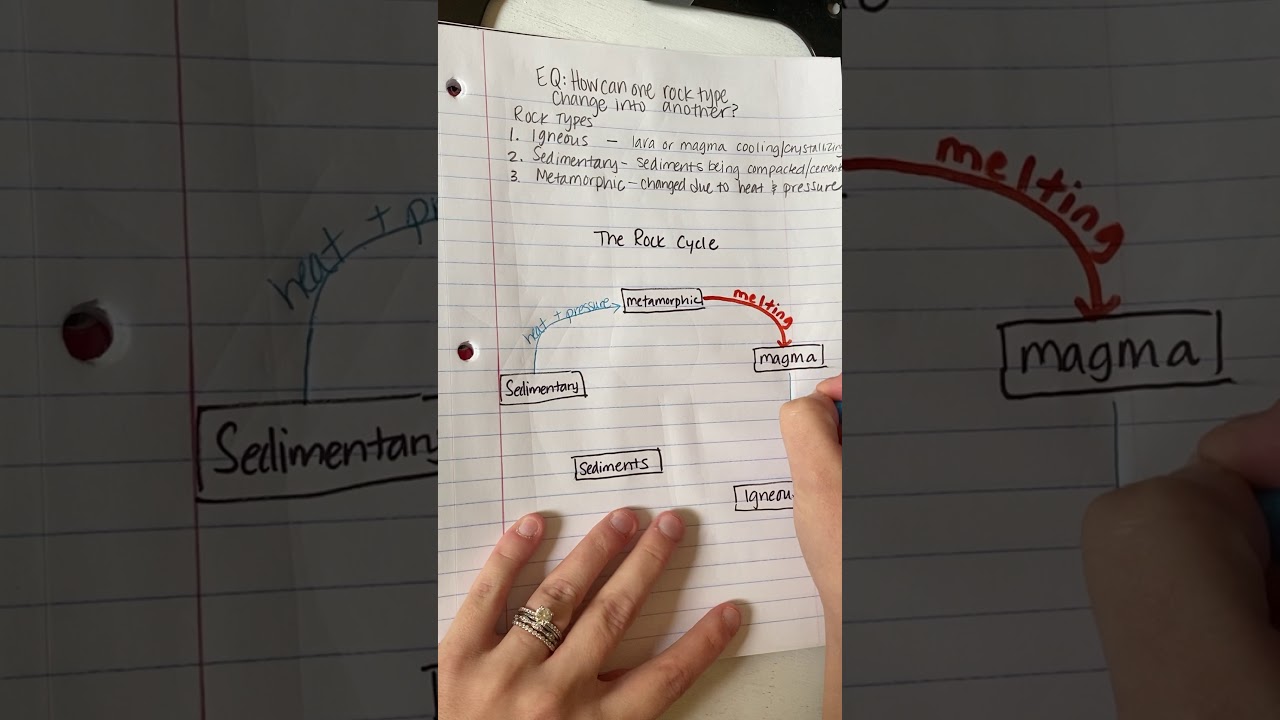 EQ: How can one rock type
change into another?
Rock Types
1. Igneous – lava or magma cooling/crystalizing
2. Sedimentary – sediments being compacted/cement
3. Metamorphic – changed due to heat & pressure
The Rock Cycle
heat + pressure
metamorphic
melting
magma
Sedimentary
Sediments
Igneou
heat + pr
melting
magma
Sedimentary